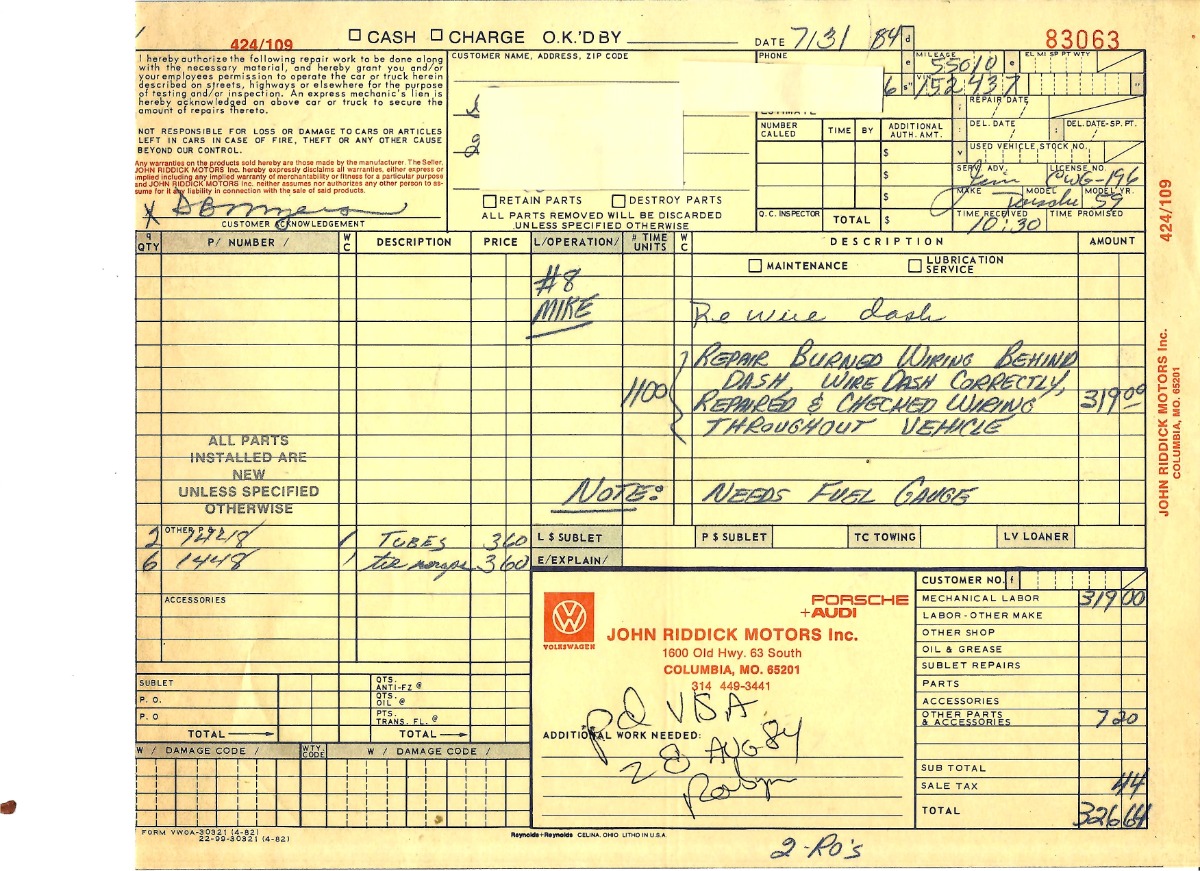 424/109 ☐ CASH ☐ CHARGE O.K.'D BY DATE 7/31 84 d 83063
I hereby authorize the following repair work to be done along
with the necessary material, and hereby grant you and/or
your employees permission to operate the car or truck herein
described on streets, highways or elsewhere for the purpose
of testing and/or inspection. An express mechanic's lien is
hereby acknowledged on above car or truck to secure the
amount of repairs thereto.
NOT RESPONSIBLE FOR LOSS OR DAMAGE TO CARS OR ARTICLES
LEFT IN CARS IN CASE OF FIRE, THEFT OR ANY OTHER CAUSE
BEYOND OUR CONTROL.
Any warranties on the products sold hereby are those made by the manufacturer. The Seller,
JOHN RIDDICK MOTORS Inc. hereby expressly disclaims all warranties, either express or
implied including any implied warranty of merchantability or fitness for a particular purpose
and JOHN RIDDICK MOTORS Inc. neither assumes nor authorizes any other person to as-
sume for it any liability in connection with the sale of said products.
X
CUSTOMER ACKNOWLEDGEMENT
CUSTOMER NAME, ADDRESS, ZIP CODE
☐ RETAIN PARTS ☐ DESTROY PARTS
ALL PARTS REMOVED WILL BE DISCARDED
UNLESS SPECIFIED OTHERWISE
PHONE
ESTIMATE
NUMBER CALLED TIME BY ADDITIONAL AUTH. AMT.
$
$
$
$
Q.C. INSPECTOR TOTAL $
e MILEAGE 55010 e EL MI SP PT WTY
6 s VIN 152437
REPAIR DATE
/
DEL. DATE DEL. DATE-SP. PT.
/ /
v USED VEHICLE STOCK NO.
SERV. ADV. Jim LICENSE NO. CWG-196
MAKE Porsche MODEL MODEL YR. 59
TIME RECEIVED 10:30 TIME PROMISED
q QTY P/ NUMBER / W C DESCRIPTION PRICE L/OPERATION/ # TIME UNITS W C DESCRIPTION AMOUNT
☐ MAINTENANCE ☐ LUBRICATION SERVICE
#8
MIKE Re wire dash
REPAIR BURNED WIRING BEHIND
DASH, WIRE DASH CORRECTLY,
1100 REPAIRED & CHECKED WIRING 319 00
THROUGHOUT VEHICLE
ALL PARTS
INSTALLED ARE
NEW
UNLESS SPECIFIED
OTHERWISE
NOTE: NEEDS FUEL GAUGE
OTHER P & A
2 1 TUBES 360
6 1448 1 tie 360
ACCESSORIES
L $ SUBLET P $ SUBLET TC TOWING LV LOANER
E/EXPLAIN/
SUBLET
P. O.
P. O
TOTAL
QTS. ANTI-FZ @
QTS. OIL @
PTS. TRANS. FL. @
TOTAL
W / DAMAGE CODE / WTY. CODE W / DAMAGE CODE /
VOLKSWAGEN
PORSCHE
+AUDI
JOHN RIDDICK MOTORS Inc.
1600 Old Hwy. 63 South
COLUMBIA, MO. 65201
314 449-3441
pd VISA
ADDITIONAL WORK NEEDED:
28 AUG 84
Robyn
CUSTOMER NO. f
MECHANICAL LABOR 319 00
LABOR-OTHER MAKE
OTHER SHOP
OIL & GREASE
SUBLET REPAIRS
PARTS
ACCESSORIES
OTHER PARTS & ACCESSORIES 7 20
SUB TOTAL
SALE TAX 44
TOTAL 326 64
FORM VWOA-30321 (4-82)
22-99-30321 (4-82)
Reynolds+Reynolds CELINA, OHIO LITHO IN U.S.A.
2-RO's
424/109
JOHN RIDDICK MOTORS Inc.
COLUMBIA, MO. 65201